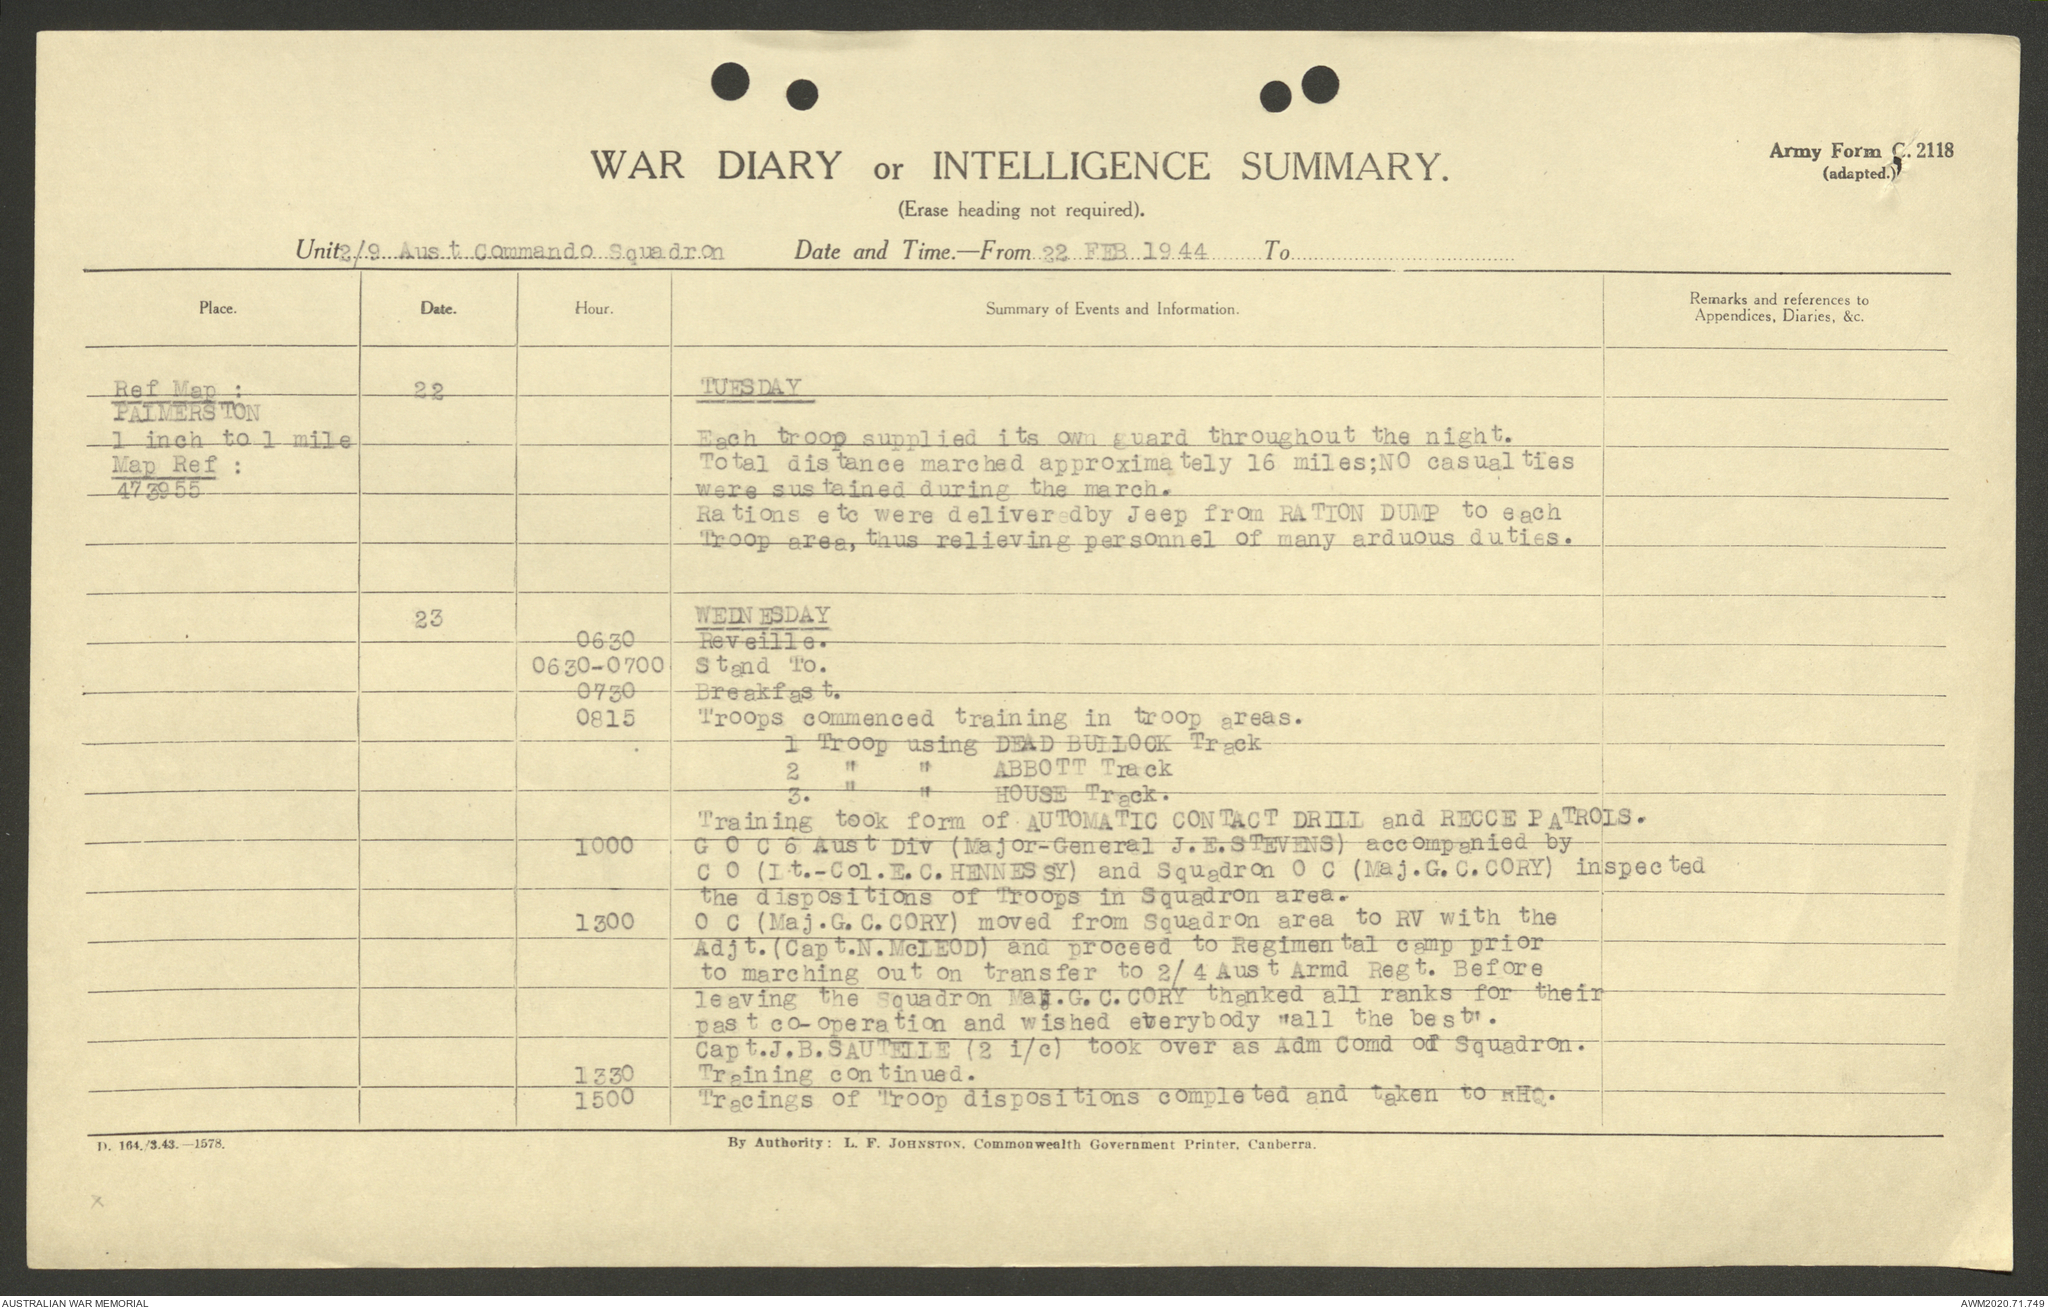 WAR DIARY or INTELLIGENCE SUMMARY.
Army Form C. 2118
(adapted.)
(Erase heading not required).
Unit 2/9 Aust Commando Squadron Date and Time.—From 22 FEB 1944 To
Place. Date. Hour. Summary of Events and Information. Remarks and references to
Appendices, Diaries, &c.
Ref Map : 22 TUESDAY
PALMERSTON
1 inch to 1 mile Each troop supplied its own guard throughout the night.
Map Ref : Total distance marched approximately 16 miles;NO casualties
473955 were sustained during the march.
Rations etc were deliveredby Jeep from RATION DUMP to each
Troop area, thus relieving personnel of many arduous duties.
23 WEDNESDAY
0630 Reveille.
0630-0700 Stand To.
0730 Breakfast.
0815 Troops commenced training in troop areas.
1 Troop using DEAD BULLOCK Track
2 " " ABBOTT Track
3. " " HOUSE Track.
Training took form of AUTOMATIC CONTACT DRILL and RECCE PATROLS.
1000 G O C 6 Aust Div (Major-General J.E.STEVENS) accompanied by
C O (Lt.-Col.E.C.HENNESSY) and Squadron O C (Maj.G.C.CORY) inspected
the dispositions of Troops in Squadron area.
1300 O C (Maj.G.C.CORY) moved from Squadron area to RV with the
Adjt.(Capt.N.McLEOD) and proceed to Regimental camp prior
to marching out on transfer to 2/4 Aust Armd Regt. Before
leaving the Squadron Maj.G.C.CORY thanked all ranks for their
past co-operation and wished everybody "all the best".
Capt.J.B.SAUTELLE (2 i/c) took over as Adm Comd of Squadron.
1330 Training continued.
1500 Tracings of Troop dispositions completed and taken to RHQ.
D. 164./3.43.—1578. By Authority: L. F. JOHNSTON, Commonwealth Government Printer, Canberra.
x
AUSTRALIAN WAR MEMORIAL AWM2020.71.749